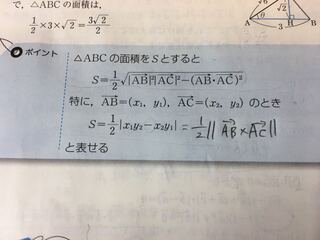 で，△ABC の面積は，
1/2×3×√2 = 3√2/2
√6
√2
θ
A
3
H
B
ポイント
△ABC の面積を S とすると
S=1/2√(|AB→|²|AC→|²−(AB→・AC→)²)
特に，AB→=(x₁, y₁)，AC→=(x₂, y₂) のとき
S=1/2|x₁y₂−x₂y₁| = 1/2‖AB→×AC→‖
と表せる